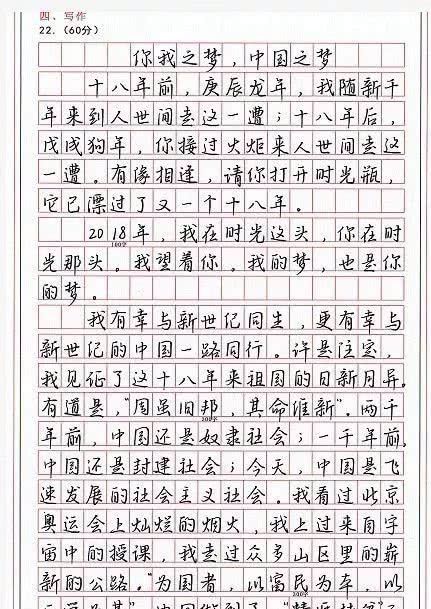 四、写作
22.（60分）
你我之梦，中国之梦
十八年前，庚辰龙年，我随新千
年来到人世间去这一遭；十八年后，
戊戌狗年，你接过火炬来人世间去这
一遭。有缘相逢，请你打开时光瓶，
它已漂过了又一个十八年。
2018年，我在时光这头，你在时
100字
光那头。我望着你。我的梦，也是你
的梦。
我有幸与新世纪同生，更有幸与
新世纪的中国一路同行。许是注定，
我见证了这十八年来祖国的日新月异。
有道是，“周虽旧邦，其命维新”。两千
200字
年前，中国还是奴隶社会；一千年前，
中国还是封建社会；今天，中国是飞
速发展的社会主义社会。我看过北京
奥运会上灿烂的烟火，我上过来自宇
宙中的授课，我走过众多山区里的崭
新的公路。“为国者，以富民为本，以
300字